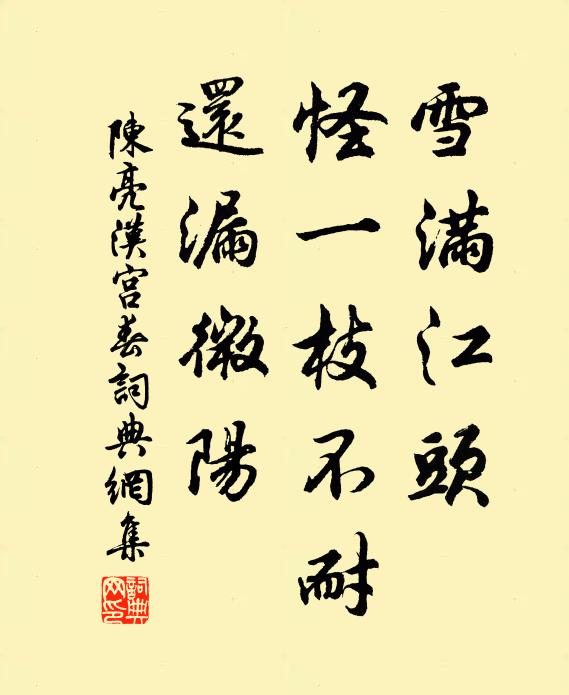 雪滿江頭
怪一枝不耐
還漏微陽
陳亮漢宮春詞典網集
詞典網印